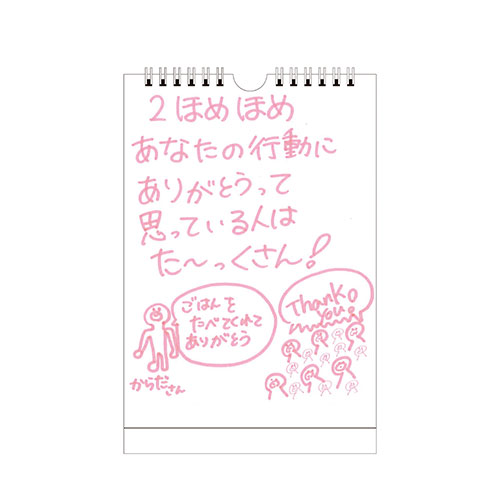 2 ほめほめ
あなたの行動に
ありがとうって
思っている人は
た〜っくさん!
ごはんを
たべてくれて
ありがとう
Thank
you!
からださん